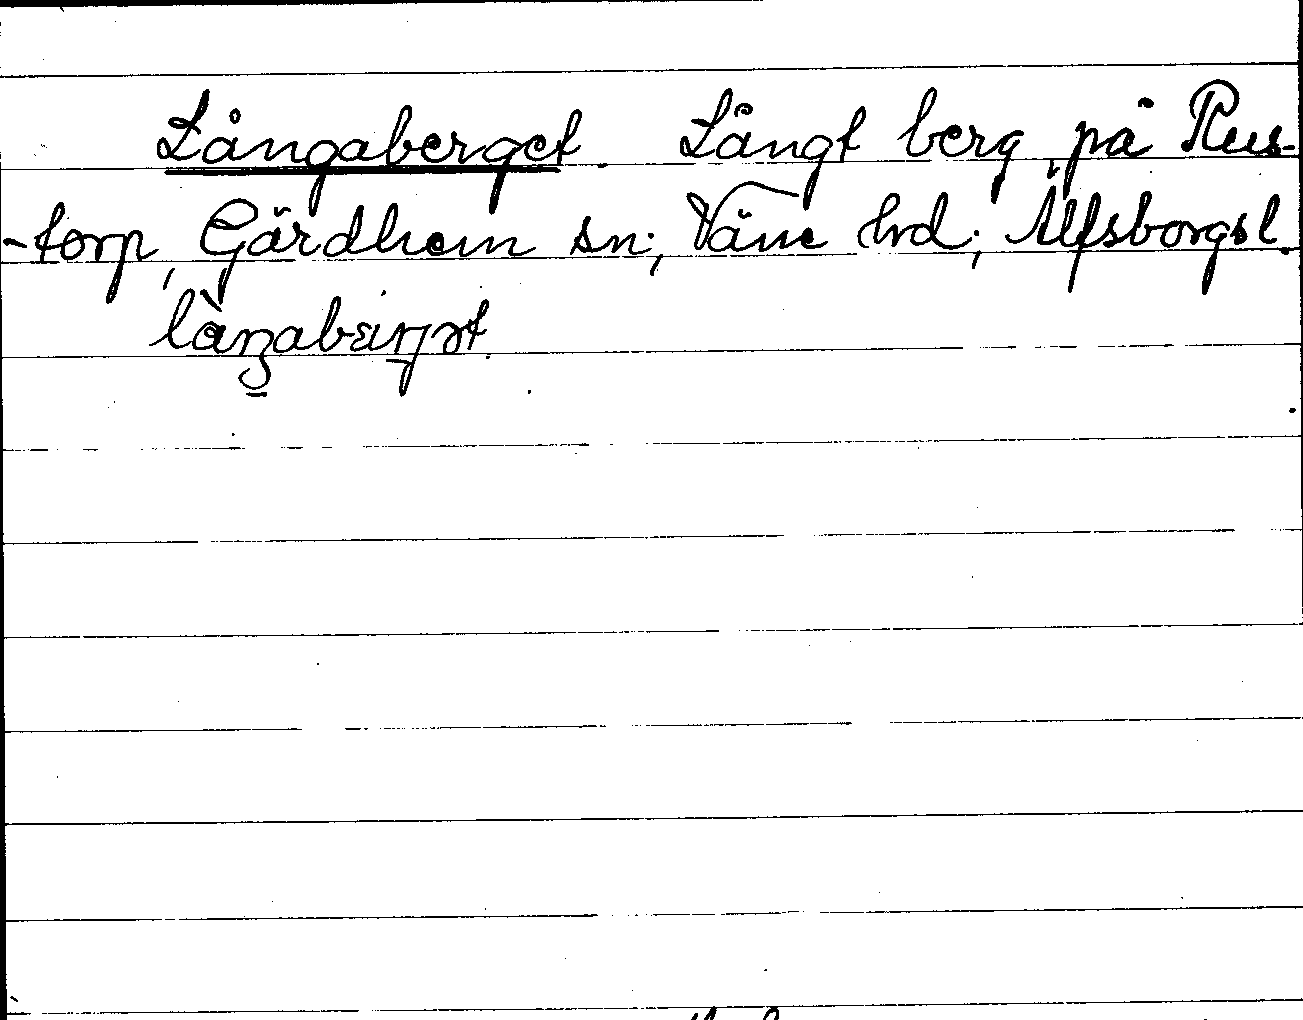 Långaberget. Långt berg på Rus-
-torp, Gärdhem sn; Väne hd; Älfsborgs l.